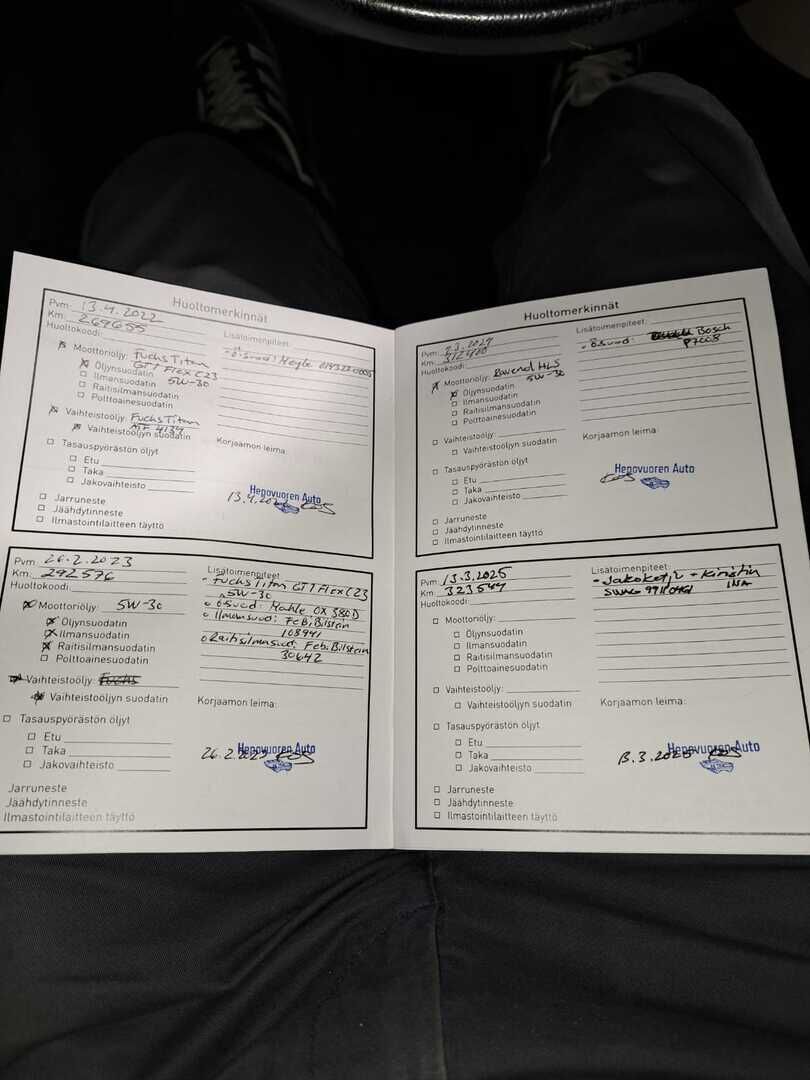 Huoltomerkinnät
Pvm: 13.4.2022
Km: 269655
Huoltokoodi:
Lisätoimenpiteet:
- ö.suod: Meyle
Moottoriöljy: Fuchs Titan
GT1 Flex C23
5W-30
Öljynsuodatin
Ilmansuodatin
Raitisilmansuodatin
Polttoainesuodatin
Vaihteistoöljy: Fuchs Titan
ATF 4134
Vaihteistoöljyn suodatin
Tasauspyörästön öljyt
Etu
Taka
Jakovaihteisto
Korjaamon leima:
Hepovuoren Auto
Jarruneste
Jäähdytinneste
Ilmastointilaitteen täyttö
Pvm: 26.2.2023
Km: 292576
Huoltokoodi:
Lisätoimenpiteet:
- Fuchs Titan GT1 Flex C23
5W-30
ö.suod: Mahle OX 380D
Ilmansuod: Feb.Bilstein
Raitisilmasuod: Feb.Bilstein
30642
Moottoriöljy: 5W-30
Öljynsuodatin
Ilmansuodatin
Raitisilmansuodatin
Polttoainesuodatin
Vaihteistoöljy: Fuchs
Vaihteistoöljyn suodatin
Tasauspyörästön öljyt
Etu
Taka
Jakovaihteisto
Korjaamon leima:
26.2.2023
Hepovuoren Auto
Jarruneste
Jäähdytinneste
Ilmastointilaitteen täyttö
Huoltomerkinnät
Pvm:
Km:
Huoltokoodi:
Lisätoimenpiteet:
- ö.suod: Bosch
P7008
Moottoriöljy: Ravenol HLS
5W-30
Öljynsuodatin
Ilmansuodatin
Raitisilmansuodatin
Polttoainesuodatin
Vaihteistoöljy:
Vaihteistoöljyn suodatin
Tasauspyörästön öljyt
Etu
Taka
Jakovaihteisto
Korjaamon leima:
Hepovuoren Auto
Jarruneste
Jäähdytinneste
Ilmastointilaitteen täyttö
Pvm: 13.3.2025
Km: 323544
Huoltokoodi:
Lisätoimenpiteet:
- Jakoketju + kiristin
INA
Moottoriöljy:
Öljynsuodatin
Ilmansuodatin
Raitisilmansuodatin
Polttoainesuodatin
Vaihteistoöljy:
Vaihteistoöljyn suodatin
Tasauspyörästön öljyt
Etu
Taka
Jakovaihteisto
Korjaamon leima:
13.3.2025
Hepovuoren Auto
Jarruneste
Jäähdytinneste
Ilmastointilaitteen täyttö